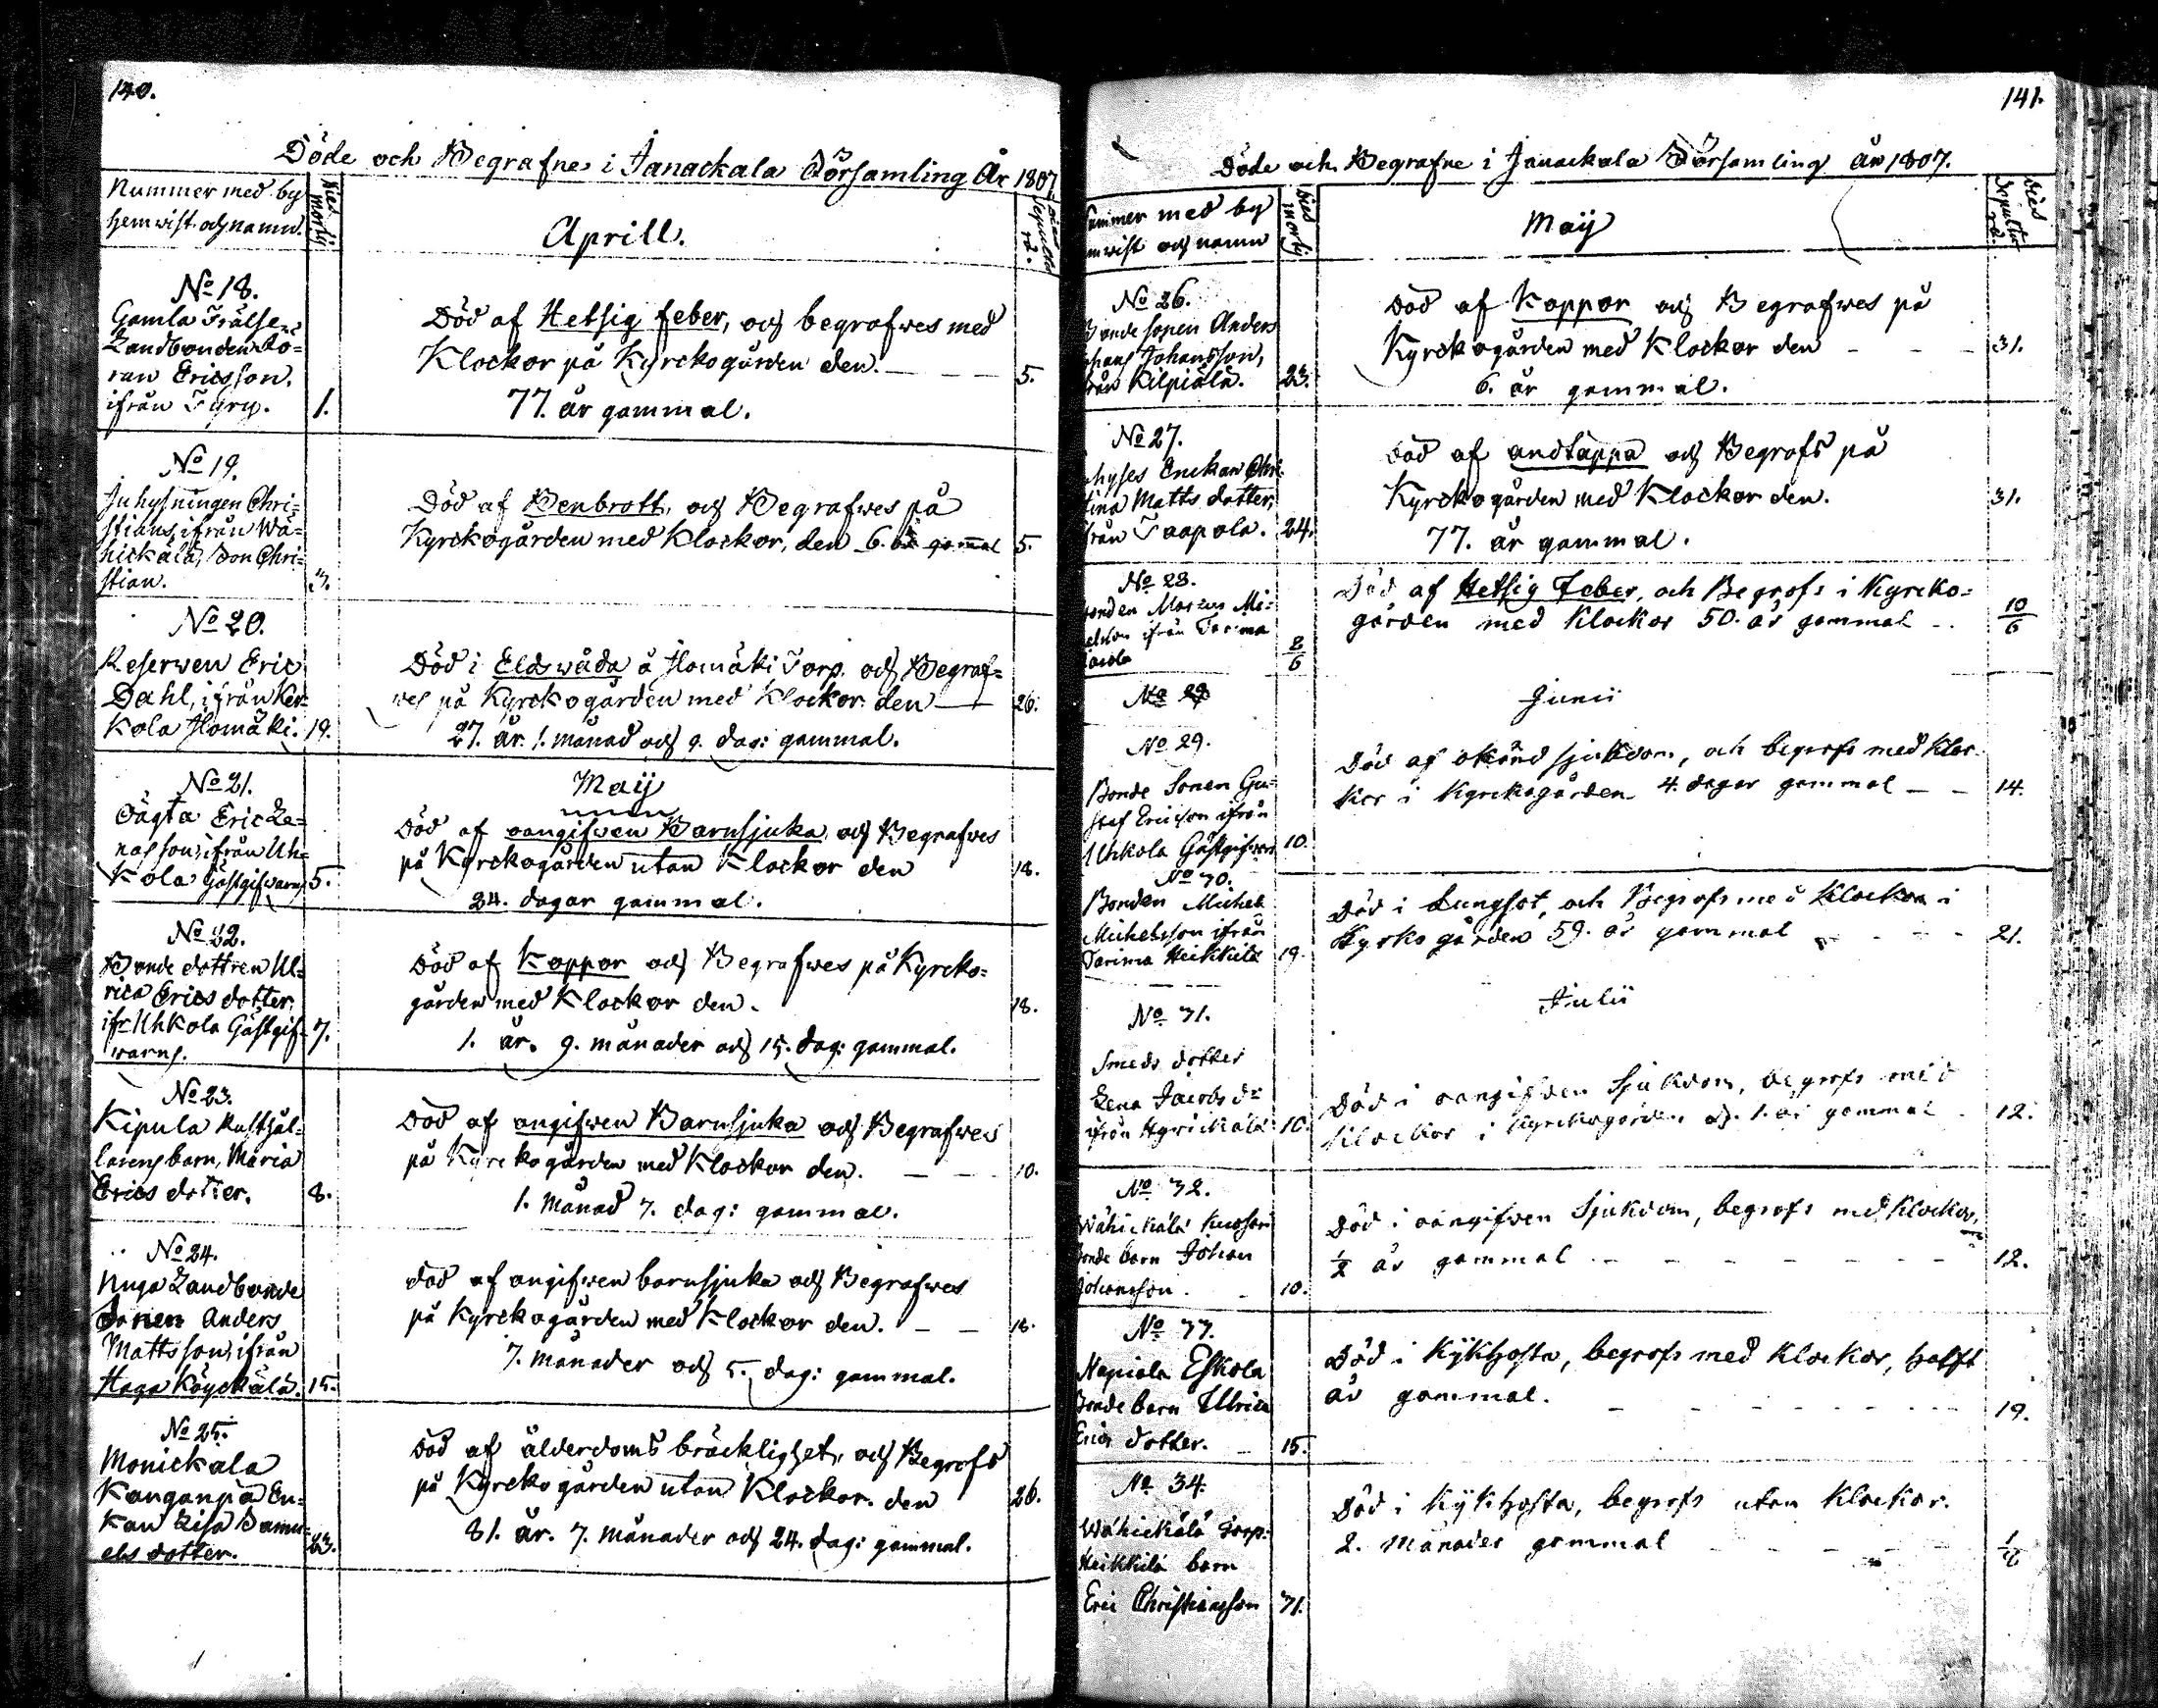 140.
Döde och Begrafne i Janackala Församling År 1807
Nummer med by
hemwist och namn.
Dies mortis
Aprill.
Dies Sepulturæ.
No 18.
Gamla Frälse
Landbonden Go=
ran Ericsson.
ifrån Tyry.
1.
Död af Hetsig feber, och begrafwes med
Klockor på Kyrckogården den. — — —
5.
77. år gammal.
No 19.
Inhysningen Chri=
stians, ifrån Wä=
hickälä, Son Chri=
stian.
3.
Död af Benbrott, och Begrafwes på
Kyrckogården med Klockor, den 6. år gammal
5.
No 20.
Reserwen Eric
Dahl, ifrån Ker=
kola Ilomäki.
19.
Död i Eldswåda å Ilomäki Torp. och Begraf=
wes på Kyrckogården med Klockor den —
26.
27. år. 1. månad och 9. dag: gammal.
No 21.
Oägta Eric Le=
nasson, ifrån Uh=
kola Gästgifwarns
5.
Maij
Död af oangifwen Barnsjuka, och Begrafwes
på Kyrckogården utan Klockor den
18.
24. dagar gammal.
No 22.
Bonde dottren Ul=
rica Erics dotter,
ifr Uhkola Gästgif=
warns.
7.
Död af Koppor och Begrafwes på Kyrcko=
gården med Klockor den.
18.
1. år. 9. månader och 15. dag: gammal.
No 23.
Kipula Rusthål=
larens barn, Maria
Erics dotter.
8.
Död af angifwen Barnsjuka och Begrafwes
på Kyrckogården med Klockor den. — — —
10.
1. Månad 7. dag: gammal.
No 24.
Landbonde
Sonen Anders
Mattsson, ifrån
Haga Köyckälä.
15.
död af angifwen barnsjuka och Begrafwes
på Kyrckogården med Klockor den. — —
18.
7. månader och 5. dag: gammal.
No 25.
Monickala
Kanganpä En=
kan Lisa Samu=
els dotter.
23.
Död af ålderdoms bräcklighet, och Begrofs
på Kyrckogården utan Klockor. den
26.
81. år. 7. Månader och 24. dag: gammal.
141.
Döde och Begrafne i Janackala Församling år 1807.
Nummer med by
hemwist och namn
Dies mortis
Maij
Dies Sepulturæ.
No 26.
Bonde sonen Anders
Johansson,
ifrån Kilpiälä.
23.
Död af Koppor och Begrafwes på
Kyrckogården med Klockor den — — —
31.
6. år gammal.
No 27.
Inhyses Enckan Chri=
stina Matts dotter,
ifrån Taapola.
24.
död af andtäppa och Begrofs på
Kyrckogården med Klockor den.
31.
77. år gammal.
No 28.
Bonden Marcus Mi=
chelsson ifrån Tarima
8/6
Död af Hetsig Feber, och Begrofs i Kyrcko=
gården med Klockor 50. år gammal ..
10/6
No 29
Junii
No 29.
Bonde Sonen Gu=
staf Ericsson ifrån
Uhkola Gästgifware
10.
Död af okänd sjukdom, och begrofs med Kloc=
kor i Kyrckogården 4. dagar gammal — —
14.
No 30.
Bonden Michel
Michelsson ifrån
Tarima Heikkilä
19.
Död i Lungsot, och Begrofs med Klockor i
Kyrkogården 59. år gammal — — —
21.
Julii
No 31.
Smeds dotter
Lena Jacobs dr
ifrån Hyrickälä
10.
Död i oangifven Sjukdom, begrofs med
Klockor i Kyrckogården och 1. år gammal
12.
No 32.
Wähickälä
Bonde barn Johan
Johansson.
10.
Död i oangifven Sjukdom, begrofs med Klockor,
1/2 år gammal — — — — — — —
12.
No 33.
Napiala Eskola
Bonde barn Ullrica
Erics dotter. —
15.
Död i Kykhosta, begrofs med Klockor, halft
år gammal. — — — — — — —
19.
No 34.
Wähickälä Torp:
Heikkilä barn
Eric Christiansson
31.
Död i Kykhosta, begrofs utan Klockor.
2. Månader gammal — — — —
1/8